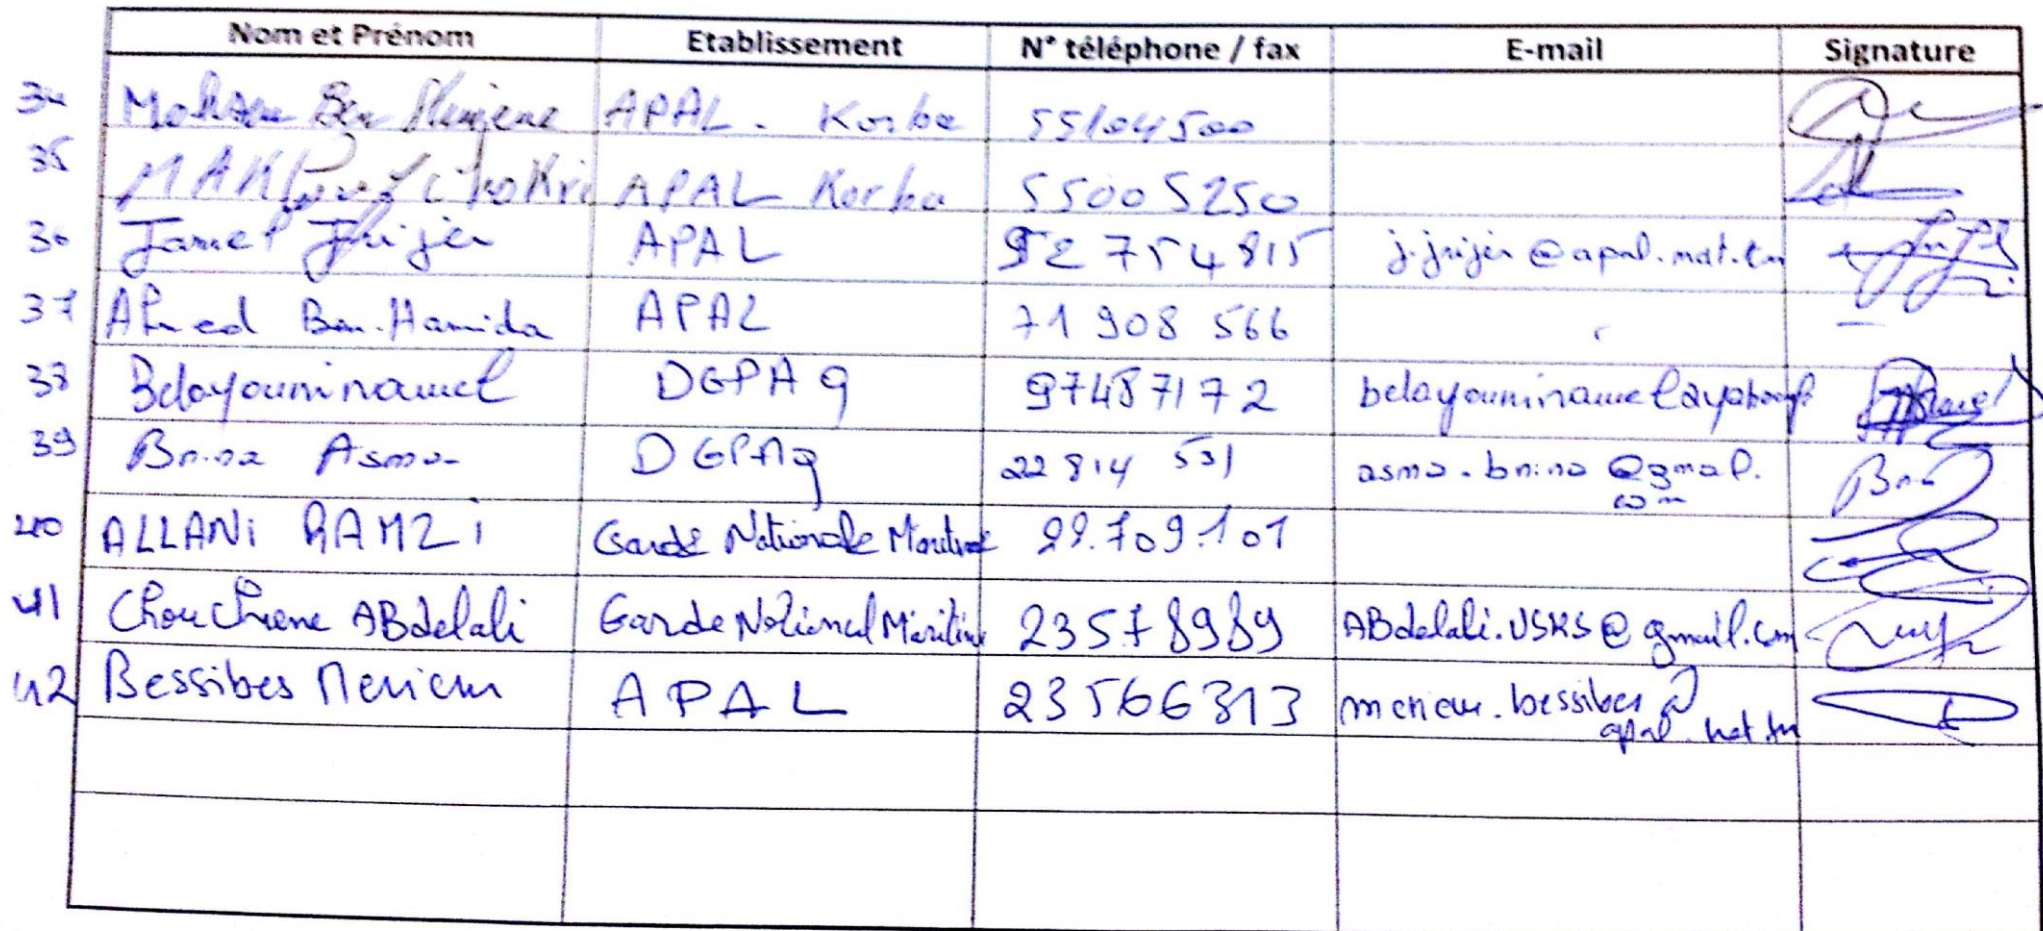 Nom et Prénom Etablissement N° téléphone / fax E-mail Signature
34 Ben APAL. Korba 55104500
35 APAL Korba 55005250
36 Jamel Jrijer APAL 92 754 815 j.jrijer@apal.nat.tn
37 Ahmed Ben.Hamida APAL 71 908 566
38 Belayouninamel DGPAq 97487172
39 Bnina Asma DGPAq 22 814 531 asma.bnina@gmail.
com
40 ALLANi RAMZi Garde Nationale 22.709.101
41 Chouchene ABdelali Garde National Maritime 23578989 ABdelali.USKS@gmail.com
42 Bessibes Meriem APAL 23566313 meriem.bessibes@
apal.nat.tn